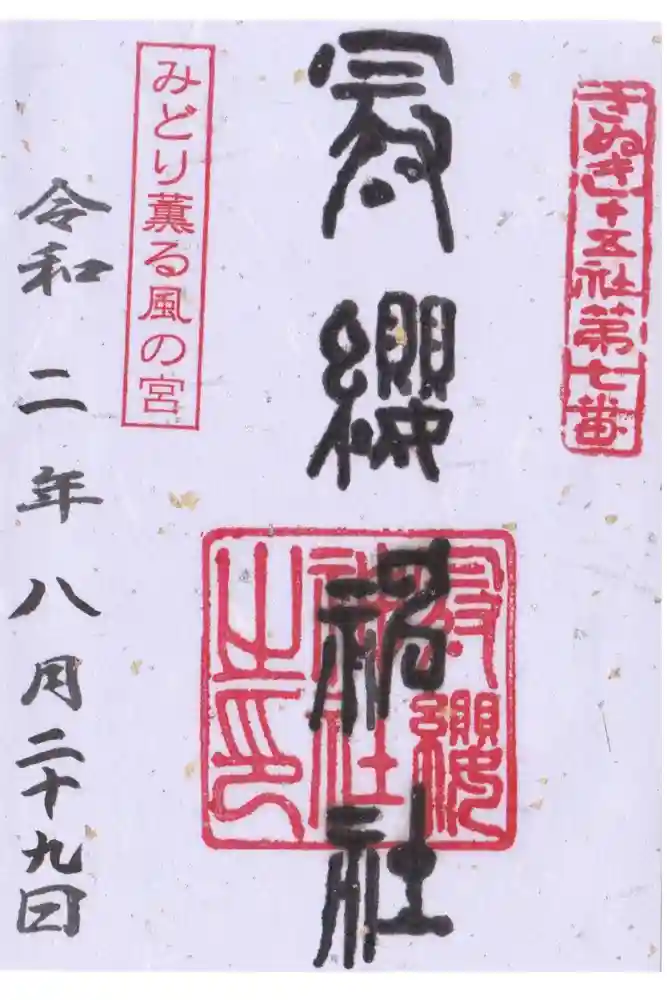 さぬき十五社第七番
冠纓神社
冠纓神社之印
みどり薫る風の宮
令和二年八月二十九日